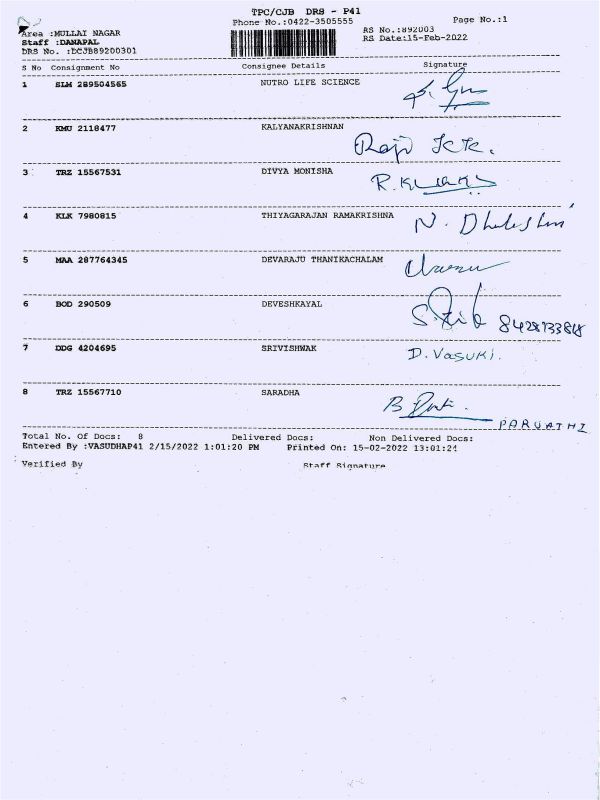 TPC/CJB DRS - P41
Phone No.:0422-3505555
Page No.:1
Area :MULLAI NAGAR
RS No.:892003
Staff :DANAPAL
RS Date:15-Feb-2022
DRS No. :DCJB89200301
S No Consignment No Consignee Details Signature
1 SLM 289504565 NUTRO LIFE SCIENCE
2 KMU 2118477 KALYANAKRISHNAN
Raji K.K.
3 TRZ 15567531 DIVYA MONISHA
4 KLK 7980815 THIYAGARAJAN RAMAKRISHNA
5 MAA 287764345 DEVARAJU THANIKACHALAM
6 BOD 290509 DEVESHKAYAL
7 DDG 4204695 SRIVISHWAK D.VASUKI.
8 TRZ 15567710 SARADHA
PARVATHI
Total No. Of Docs: 8 Delivered Docs: Non Delivered Docs:
Entered By :VASUDHAP41 2/15/2022 1:01:20 PM Printed On: 15-02-2022 13:01:24
Verified By Staff Signature